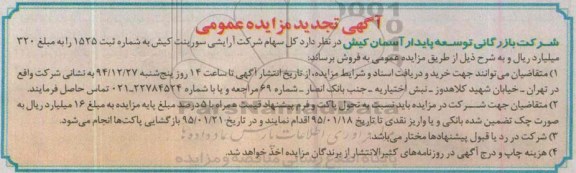 آگهی تجدید مزایده عمومی
شرکت بازرگانی توسعه پایدار آسمان کیش در نظر دارد کل سهام شرکت آرایشی سورینت کیش به شماره ثبت ۱۵۲۵ را به مبلغ ۳۲۰
میلیارد ریال و به شرح ذیل از طریق مزایده عمومی به فروش برساند.
۱) متقاضیان می توانند جهت خرید و دریافت اسناد و شرایط مزایده، از تاریخ انتشار آگهی تا ساعت ۱۴ روز پنج‌شنبه ۹۴/۱۲/۲۷ به نشانی شرکت واقع
در تهران - خیابان شهید کلاهدوز - نبش اختیاریه - جنب بانک انصار - شماره ۶۹ مراجعه و یا با شماره ۲۲۷۸۴۵۲۴-۰۲۱ تماس حاصل فرمایند.
۲) متقاضیان جهت شرکت در مزایده بایستی به تحویل پاکت و فرم پیشنهاد قیمت همراه با ۵ درصد مبلغ پایه مزایده به مبلغ ۱۶ میلیارد ریال به
صورت چک تضمین شده بانکی و یا واریز نقدی تا تاریخ ۹۵/۰۱/۱۸ اقدام نمایند و در تاریخ ۹۵/۰۱/۲۱ بازگشایی پاکت‌ها انجام می‌شود.
۳) شرکت در رد یا قبول پیشنهادها مختار می‌باشد.
۴) هزینه چاپ و درج آگهی در روزنامه‌های کثیرالانتشار از برندگان مزایده اخذ خواهد شد.